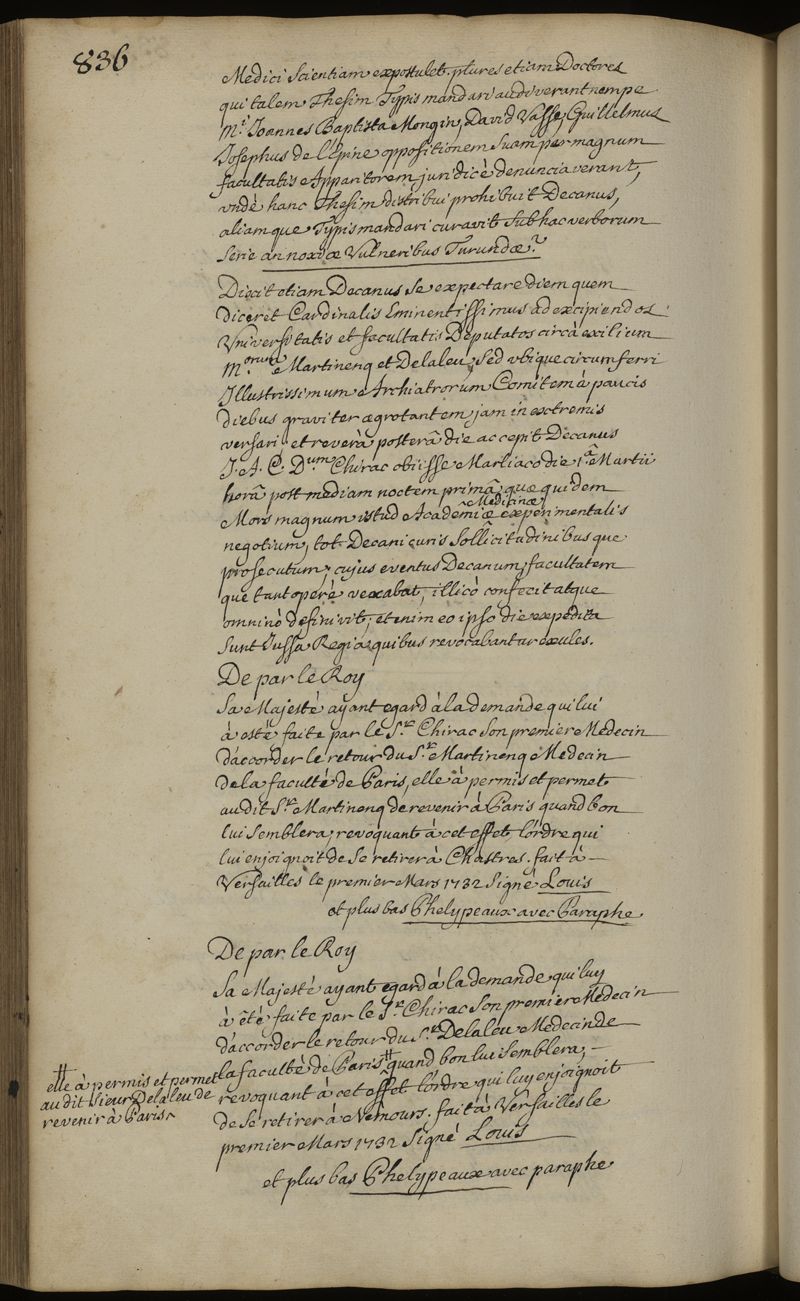 836
Medici Scientiam expostulet. plures etiam Doctores
qui talem Thesim Typis mandari audiverant nempe
M.i Joannes Baptista Mongin, David Vasse, Guillelmus
Josephus de l'Epine oppositionem Suam per magnum
facultatis Apparitorem juridicè denunciaverant,
undè hanc Thesim distribui prohibuit Decanus,
aliamque Typis mandari curavit Sub hac verborum
Serie an noxiæ Vulneribus Turundæ?
Dixit etiam Decanus Se expectare diem quem
diceret Cardinalis Eminentissimus ad excipiendos
Universitatis et facultatis Deputatos circà exilium
M.orum Martinenq et Delaleu, Sed ubique circumferri
Illustrissimum Archiatrorum Comitem à paucis
diebus graviter ægrotantem jam in extremis
versari, et reverà posterâ die accepit Decanus
J. A. C. D.um Chirac obiisse Marliaco die 1.â Martii
horâ post mediam noctem primâ, quæ quidem
Mors magnum istud Academiæ Medicinæ experimentalis
negotium, tot Decani curis Sollicitudinibusque
prosecutum, cujus eventus Decanum, facultatem
que tantoperè vexabat, illicò confecit atque
omninò definivit, etenim eo ipso die expedita
Sunt Jussa Regia quibus revocabantur exules.
De par le Roy
Sa Majesté ayant egard à la demande qui lui
à esté faite par le S.r Chirac Son premier Medecin
d'accorder le retour du S.r Martinenq Medecin
de la faculté de Paris, elle à permis et permet
audit S.r Martinenq de revenir à Paris quand bon
lui Semblera, revoquant à cet effet l'ordre qui
lui enjoignoit de Se retirer à Chastres. fait à
Versailles le premier Mars 1732 Signé Louis
et plus bas Phelypeaux avec Paraphe
De par le Roy
Sa Majesté ayant egard à la demande qui luy
à été faite par le S.r Chirac Son premier Medecin
d'accorder le retour du S.r Delaleu Medecin de
la faculté de Paris ‡ quand bon lui Semblera,
‡ elle à permis et permet
au dit Sieur Delaleu de
revenir à Paris
revoquant à cet effet l'ordre qui luy enjoignoit
de Se retirer à Nemours. fait à Versailles le
premier Mars 1732 Signé Louis
et plus bas Phelypeaux avec paraphe